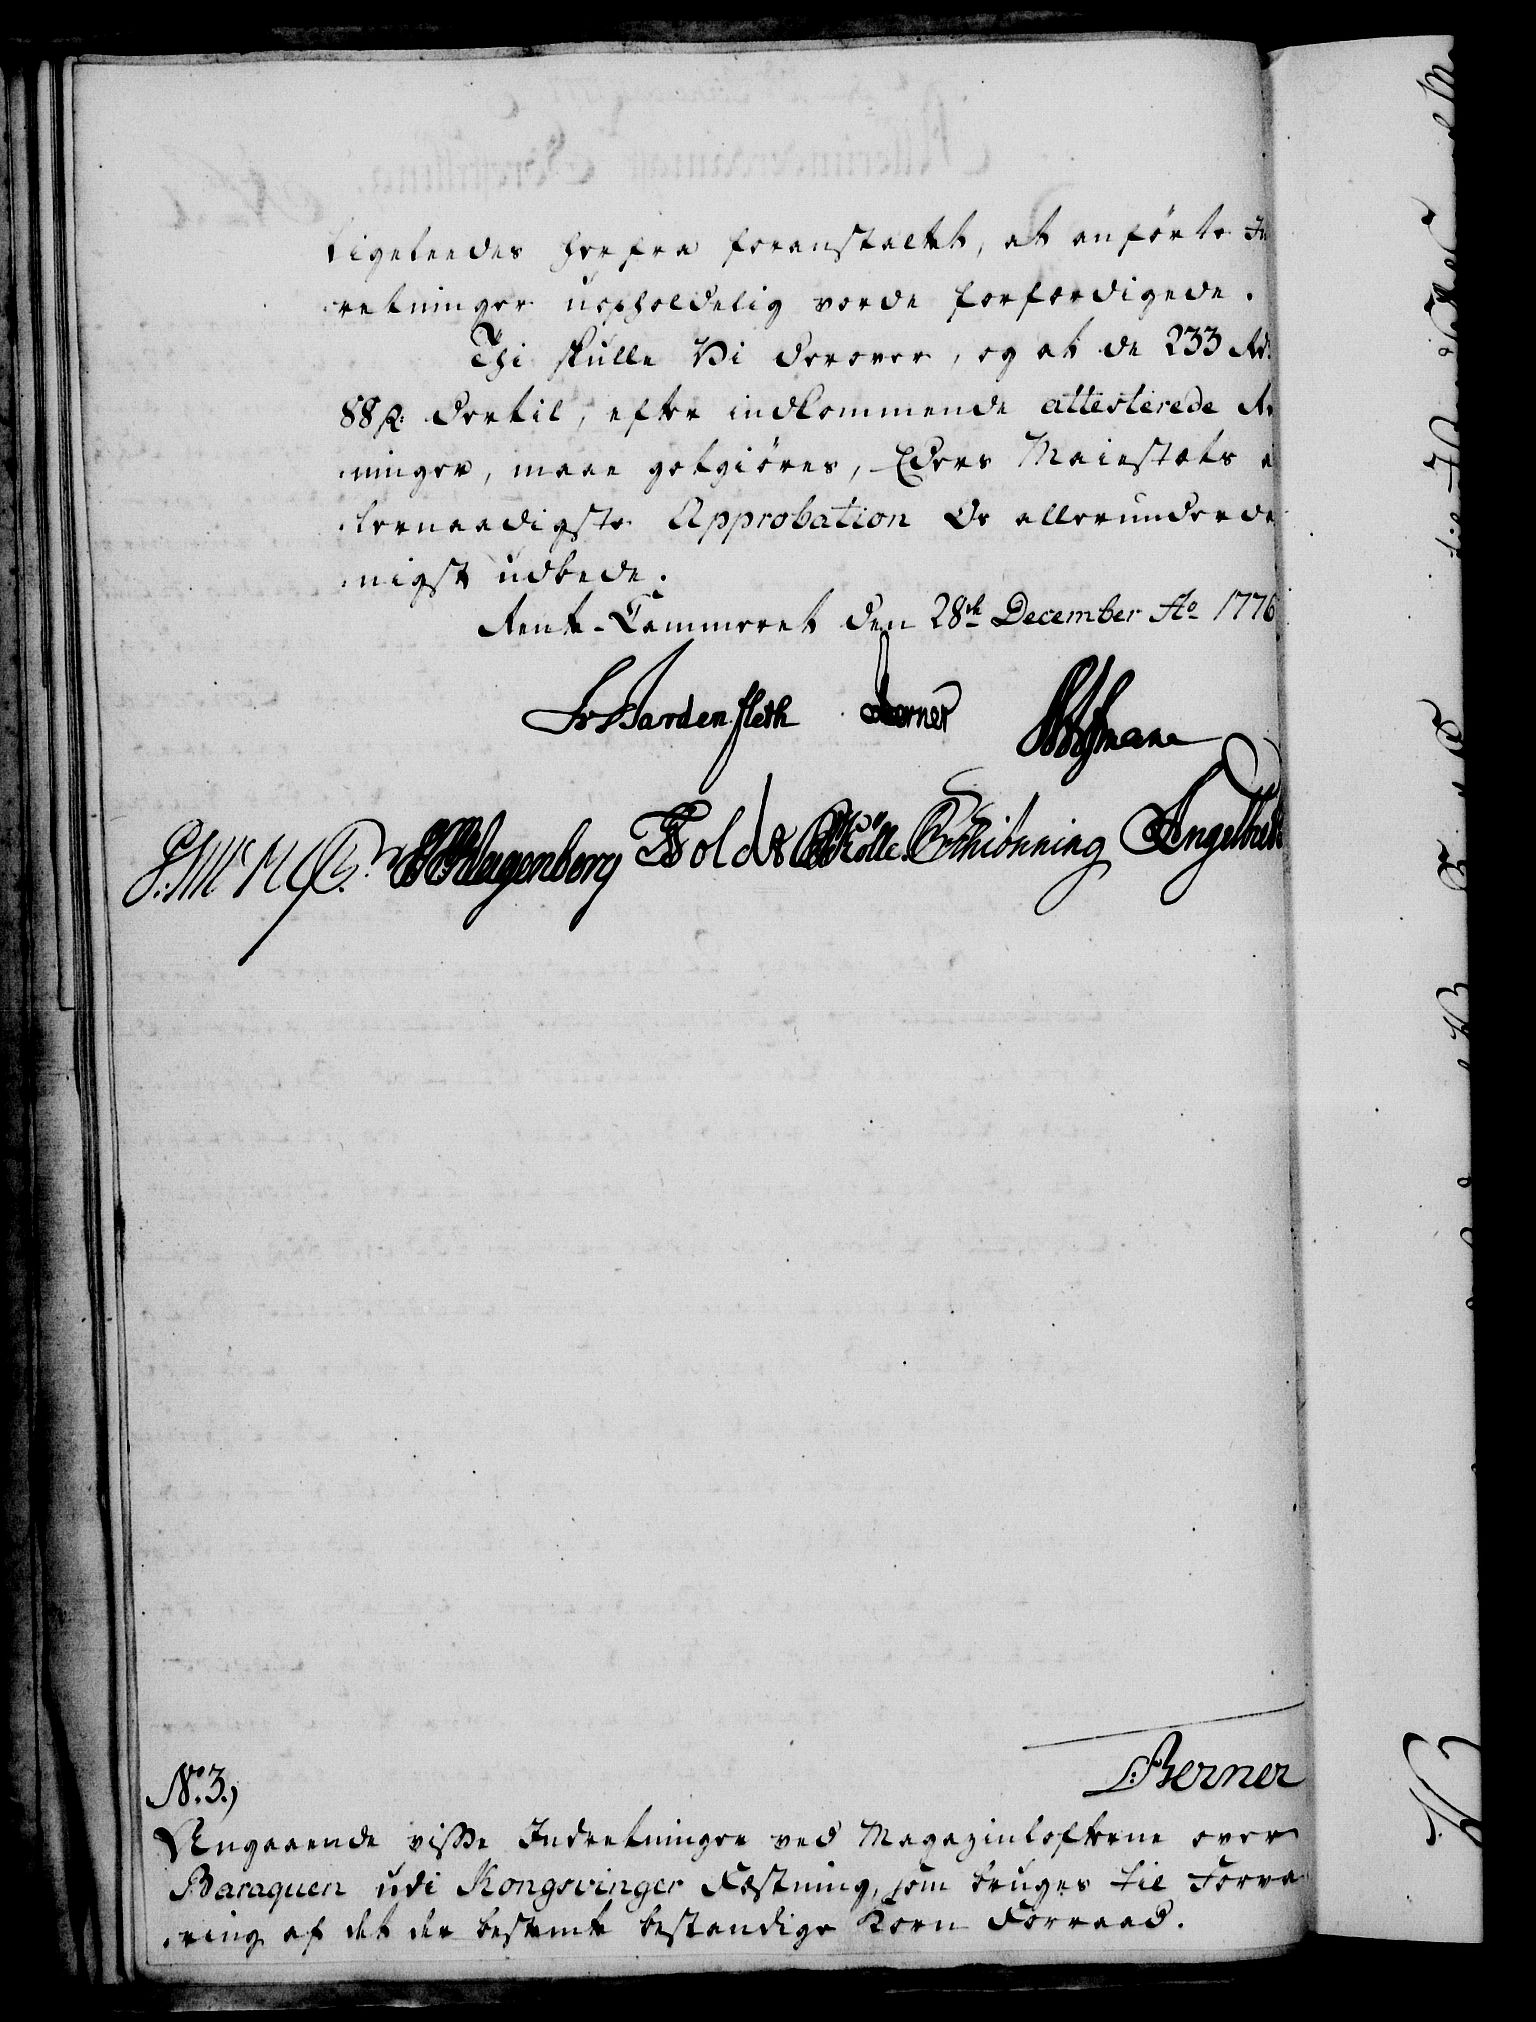 ligeledes herfra foranstaltet, at anførte In
retninger uopholdelig vorde forfærdigede.
Thi skulle Vi derover, og at de 233 Rd.
88 ß. dertil, efter indkommende attesterede Re
ninger, maae godtgiøres, Eders Maiestæts a
lernaadigste Approbation os allerunderda
nigst udbede.
Rente-Cammeret den 28de December Ao 1776
Fr Bardenfleth Berner Hoffmann
Klagenberg Holdt Kølle Schibnning Engelbret
L: Berner
No. 3.)
Angaaende visse Indretninger ved Magazinlofterne over
Baraquen udi Kongsvinger Fæstning, som bruges til Forva
ring af det der bestemte bestandige Korn Forraad.